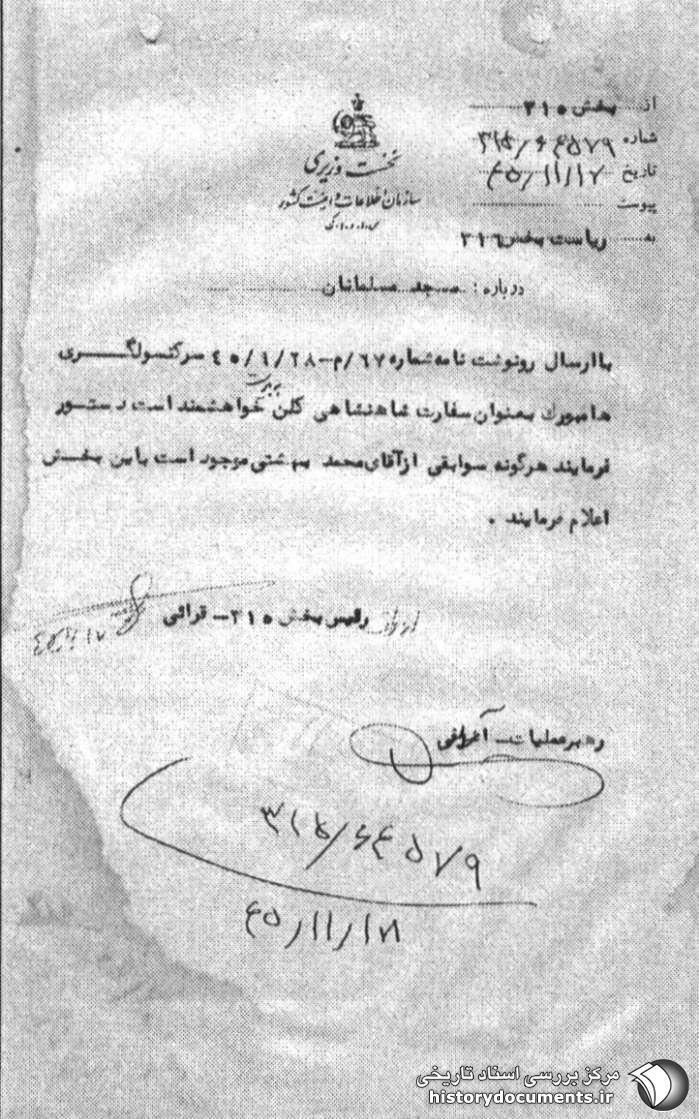 از بخش ۳۱۵
شماره ۳۱۵/۶۴۵۷۹
تاریخ ۴۵/۱۱/۱۷
پیوست
به ریاست بخش ۳۱۶
نخست وزیری
سازمان اطلاعات و امنیت کشور
س.ا.و.ا.ک
درباره : مسجد مسلمانان
با ارسال رونوشت نامه شماره ۶۷/م-۴۵/۹/۲۸ سرکنسولگری
هامبورک بعنوان سفارت شاهنشاهی کلن خواهشمند است دستور
فرمایند هرگونه سوابقی از آقای محمد بهشتی موجود است باین بخش
اعلام فرمایند .
رئیس بخش ۳۱۵ - قرائی
رهبر عملیات -
۳۱۵/۶۴۵۷۹
۴۵/۱۱/۱۸
مرکز بررسی اسناد تاریخی
historydocuments.ir